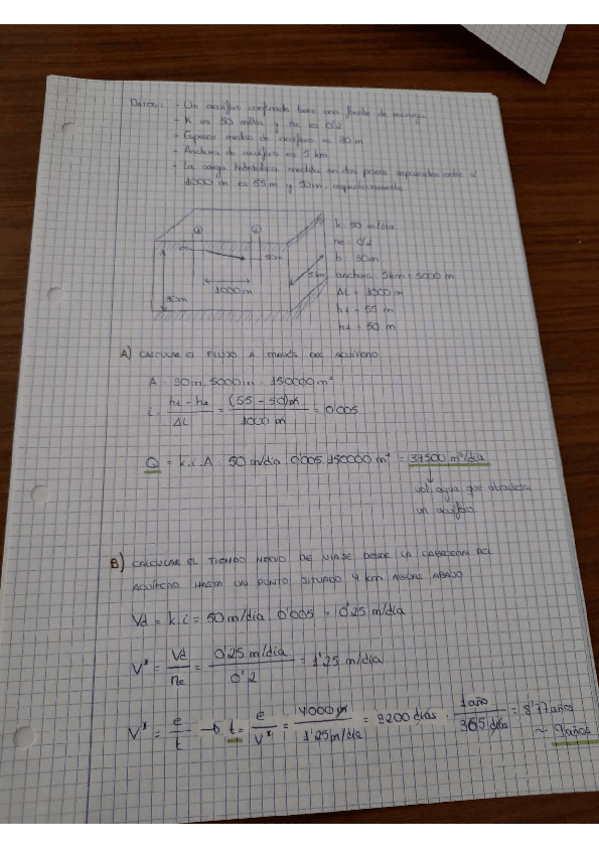 DATOS: - Un acuífero confinado tiene una fuente de recarga
- K es 50 m/día y ne es 0'2
- Espesor medio de acuífero es 30 m
- Anchura de acuífero es 5 km
- La carga hidráulica medida en dos pozos separados entre sí
1000 m es 55 m y 50 m, respectivamente
① ②
50m
1000 m
5 km
30m
k 50 m/día
ne = 0'2
b 30m
anchura 5km = 5000 m
ΔL = 1000 m
h1 = 55 m
h2 = 50 m
A) CALCULAR EL FLUJO A TRAVÉS DEL ACUÍFERO
A = 30m . 5000m = 150000 m²
i = h1 - h2 / ΔL = (55 - 50)m / 1000 m = 0'005
Q = k.i.A = 50 m/día . 0'005 . 150000 m² = 37500 m³/día
vol agua que atraviesa
un acuífero
B) CALCULAR EL TIEMPO MEDIO DE VIAJE DESDE LA CABECERA DEL
ACUÍFERO HASTA UN PUNTO SITUADO 4 KM AGUAS ABAJO
Vd = k.i = 50 m/día . 0'005 = 0'25 m/día
V* = Vd / ne = 0'25 m/día / 0'2 = 1'25 m/día
V* = e / t → t = e / V* = 4000 m / 1'25 m/día = 3200 días . 1 año / 365 días = 8'77 años
~ 9 años